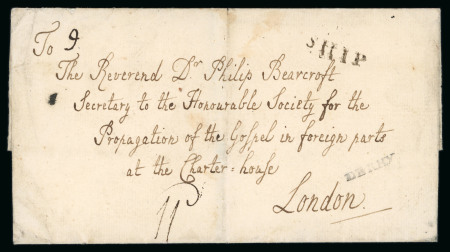 To
SHIP
The Reverend Dr Philip Bearcroft
Secretary to the Honourable Society for the
Propagation of the Gospel in foreign parts
at the Charter-house
DERRY
London